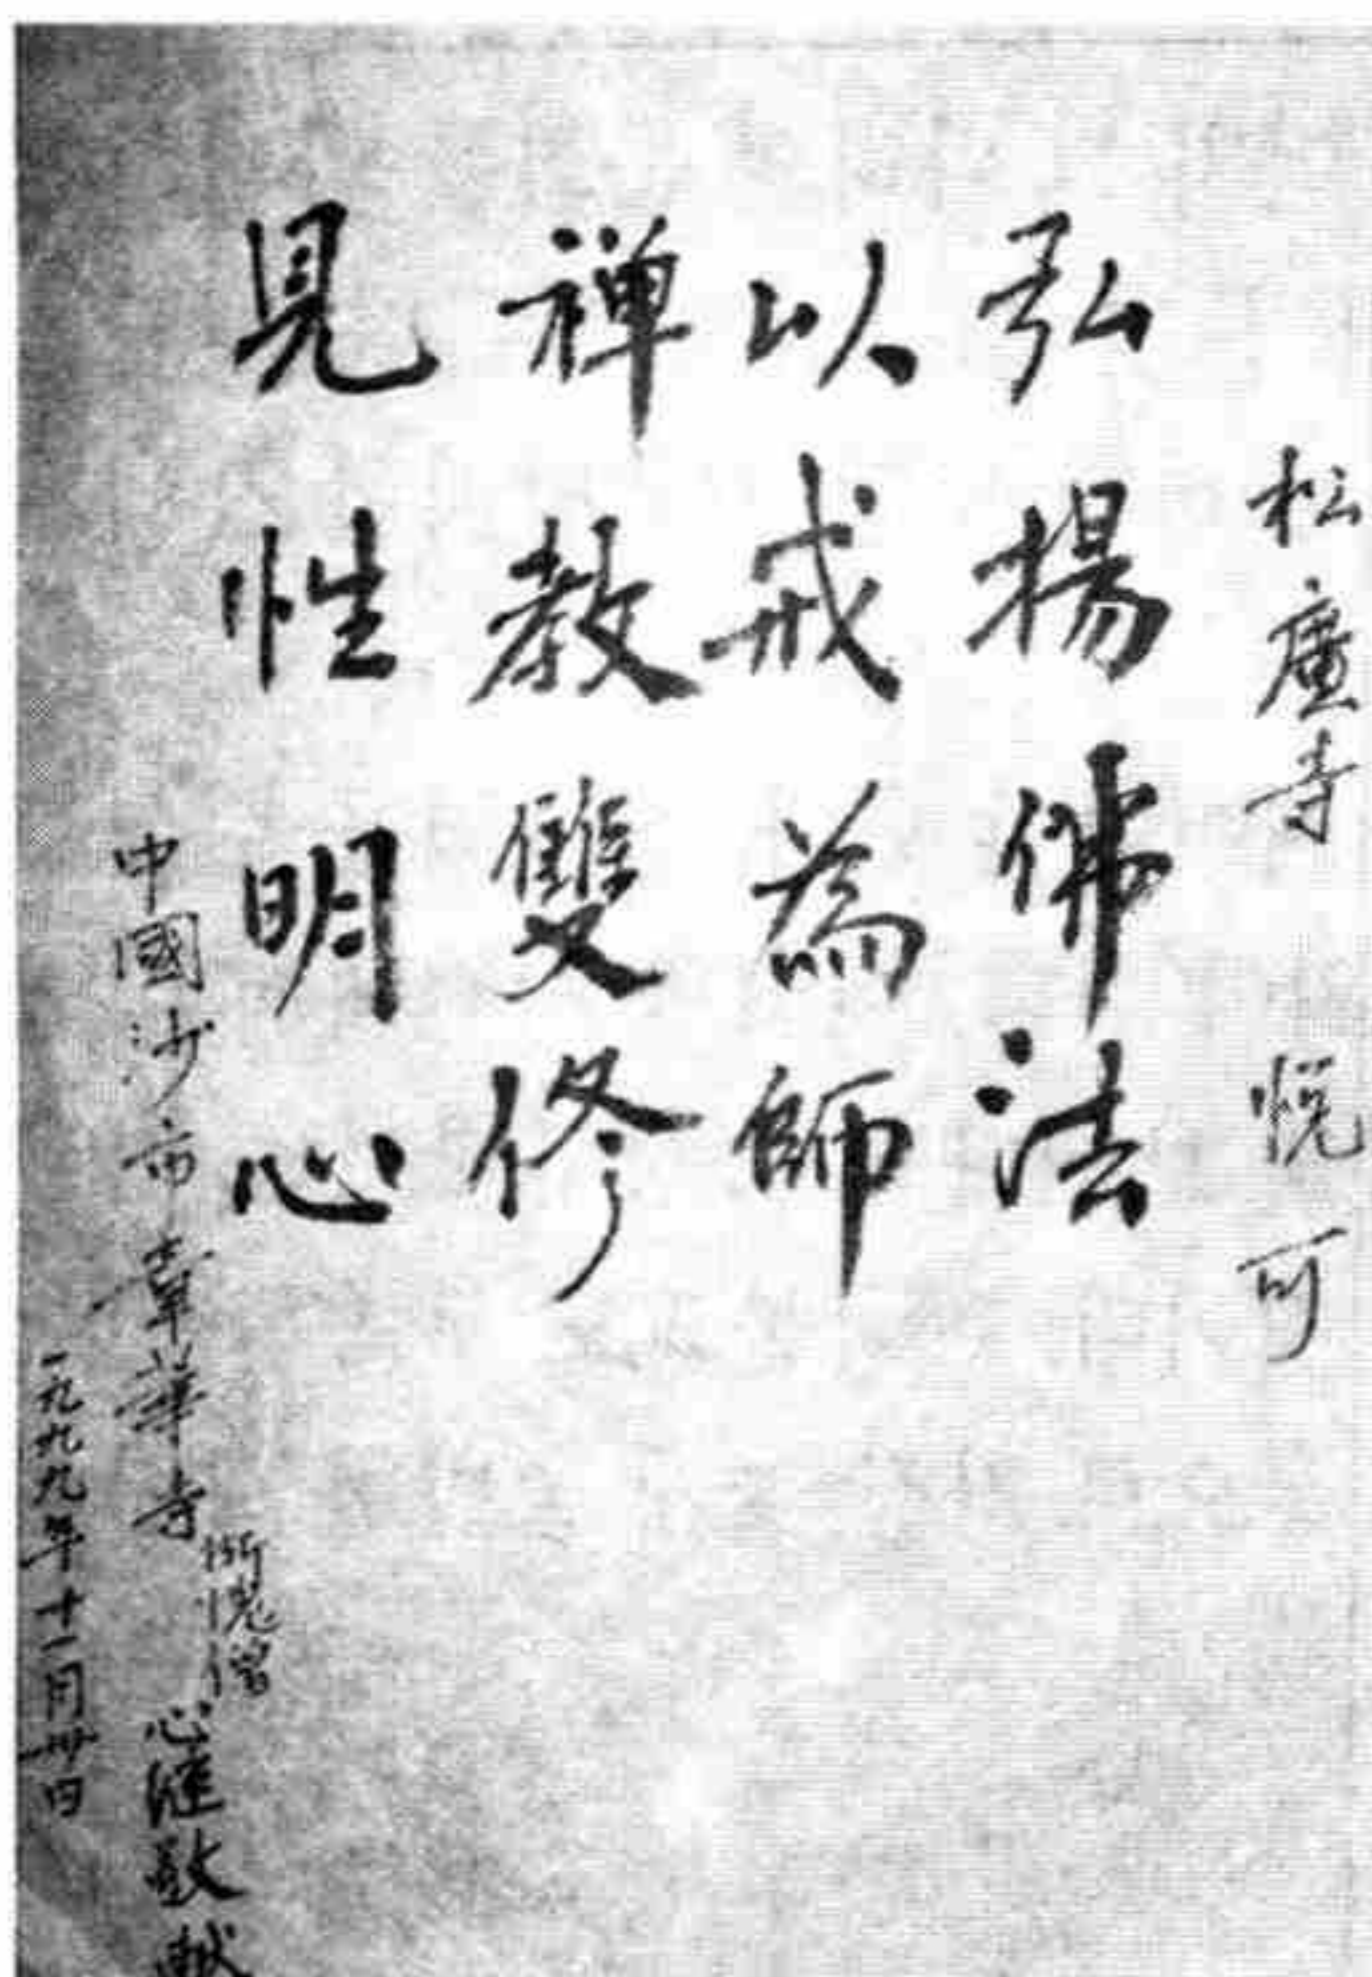 松廣寺 悦可
弘揚佛法
以戒為師
禅教雙修
見性明心
中國沙市章華寺
慚愧僧
心滙敬献
一九九九年十一月卅日